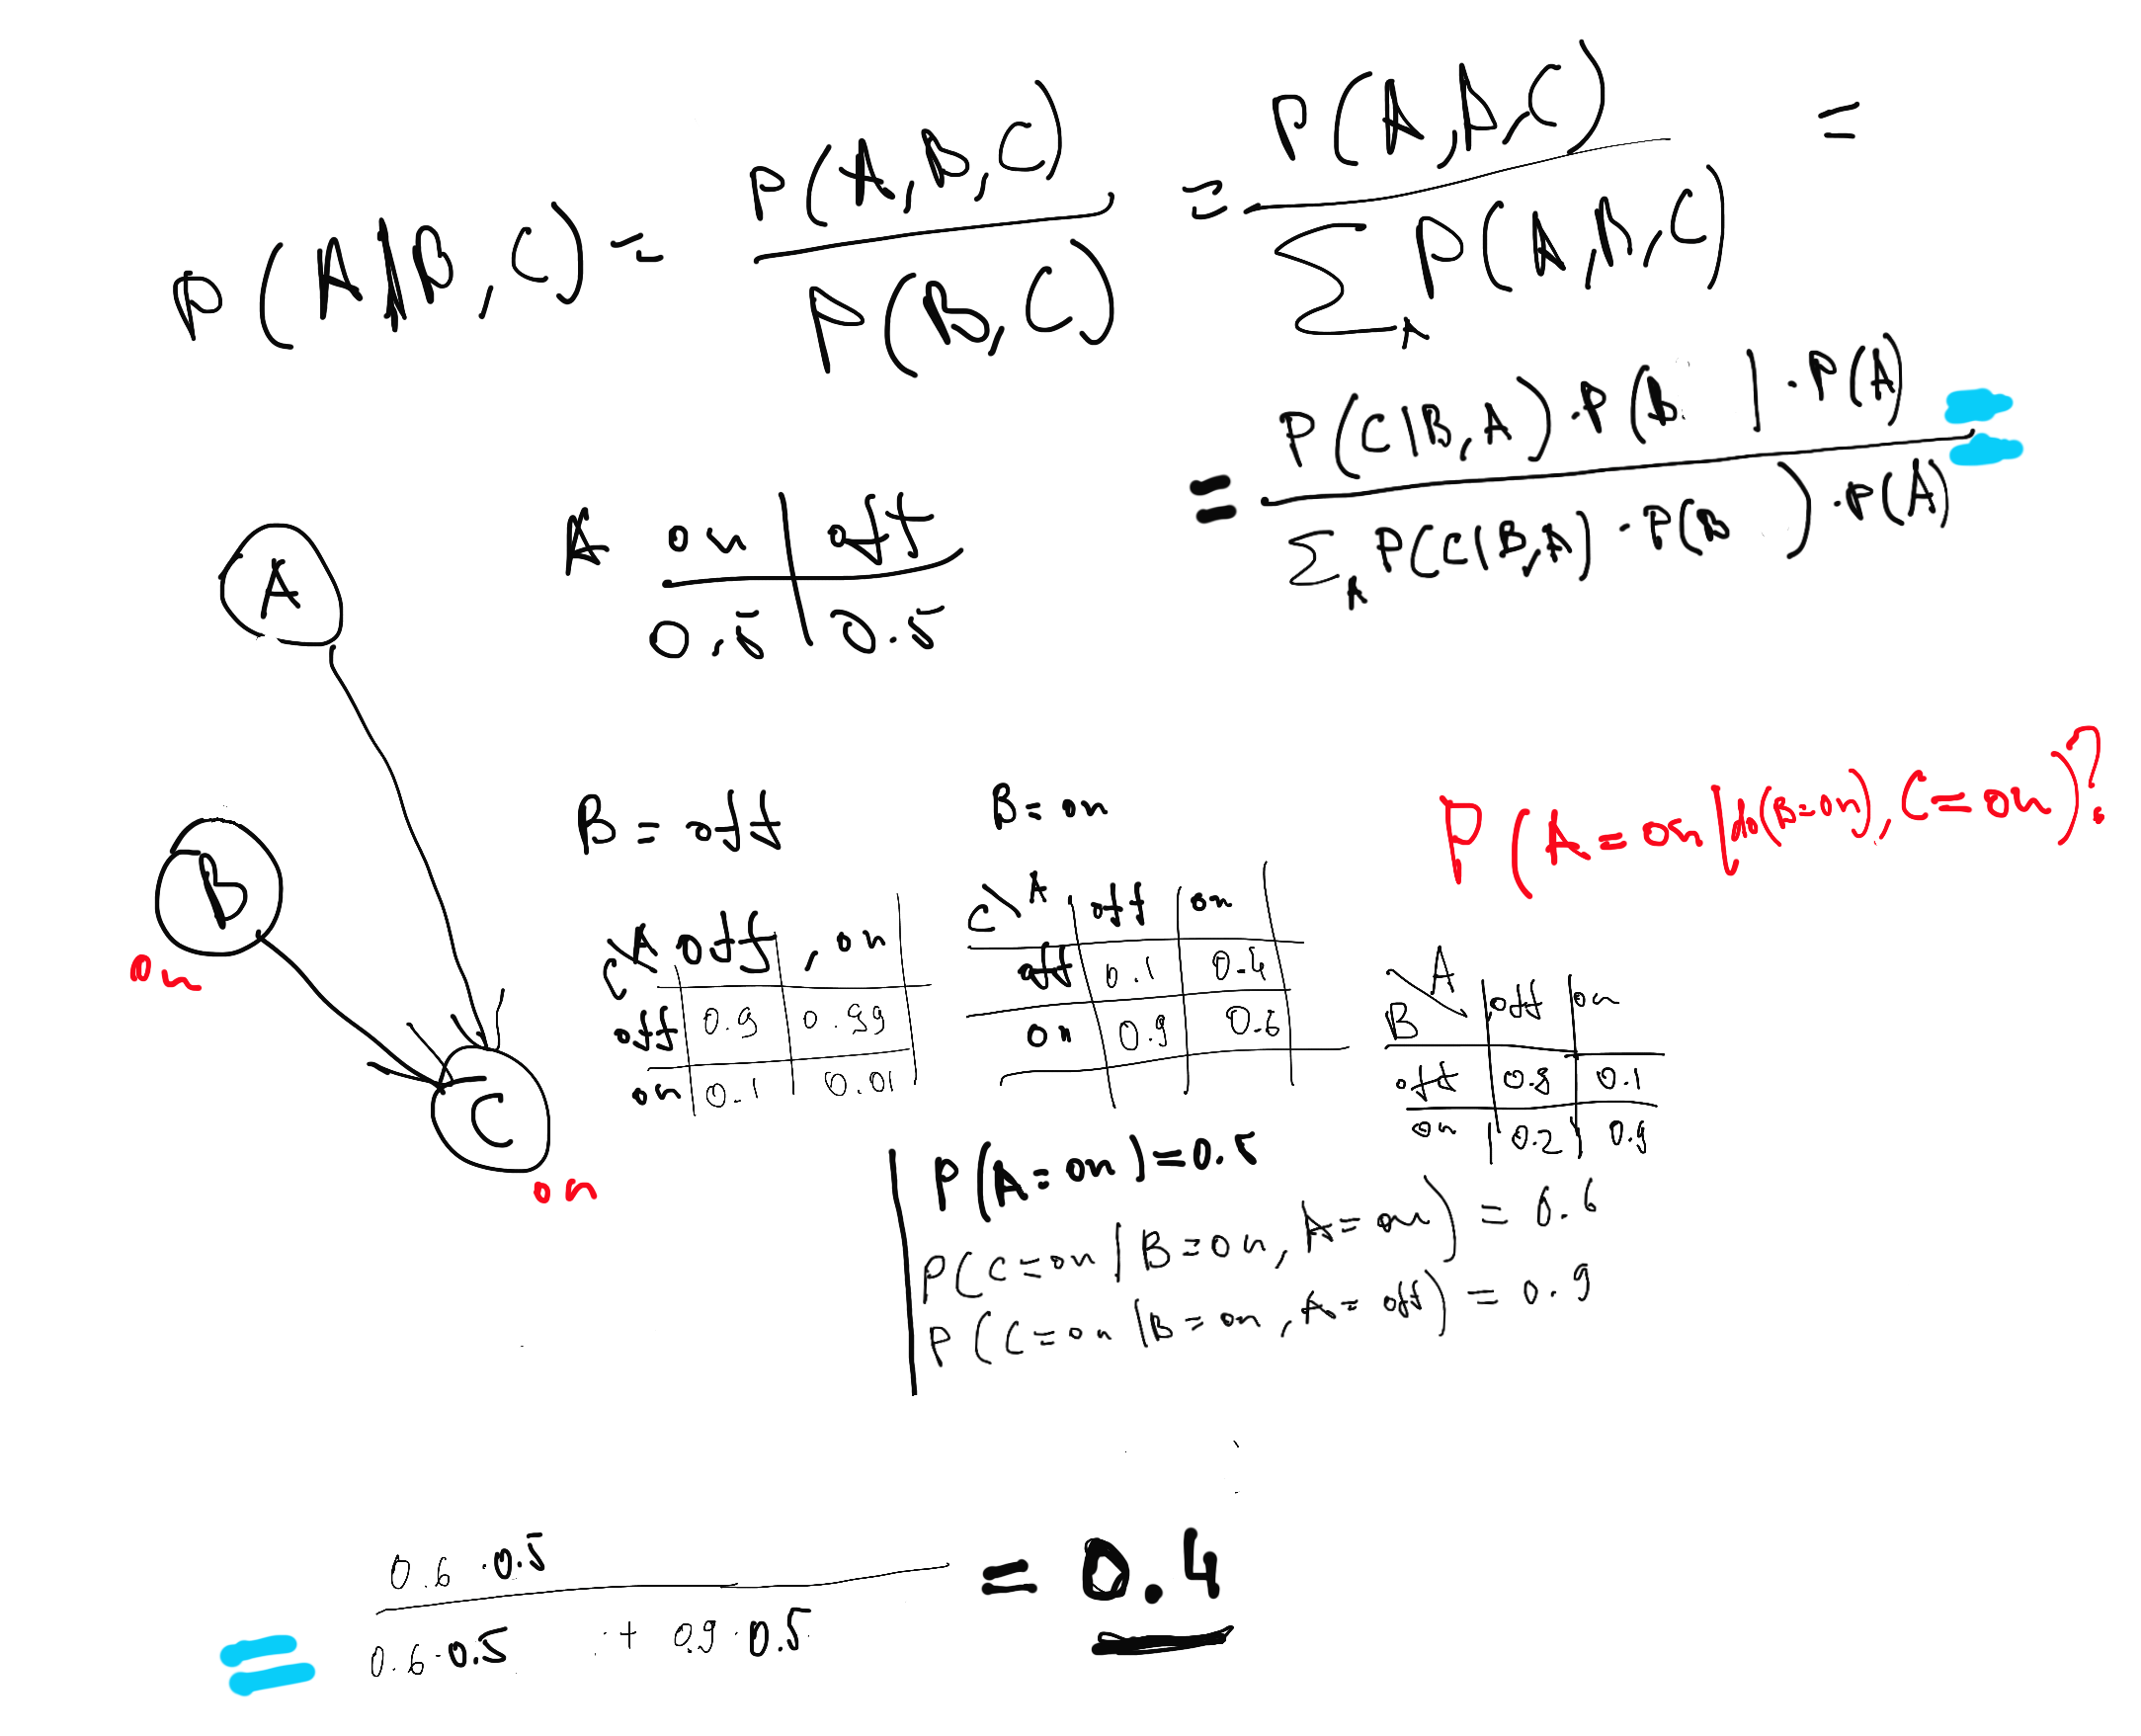 P(A|B,C) = P(A,B,C) / P(B,C) = P(A,B,C) / ∑_A P(A,B,C) =
= P(C|B,A) · P(B ) · P(A) / ∑_A P(C|B,A) · P(B ) · P(A) =
A on off
0.5 0.5
A
B
on
C
on
B = off
C\A off , on
off 0.9 0.99
on 0.1 0.01
B = on
C\A off on
off 0.1 0.4
on 0.9 0.6
P(A=on|do(B=on), C=on)?
B\A off on
off 0.8 0.1
on 0.2 0.9
P(A=on)=0.5
P(C=on|B=on, A=on) = 0.6
P(C=on|B=on, A=off) = 0.9
= 0.6 · 0.5 / 0.6 · 0.5 + 0.9 · 0.5 = 0.4